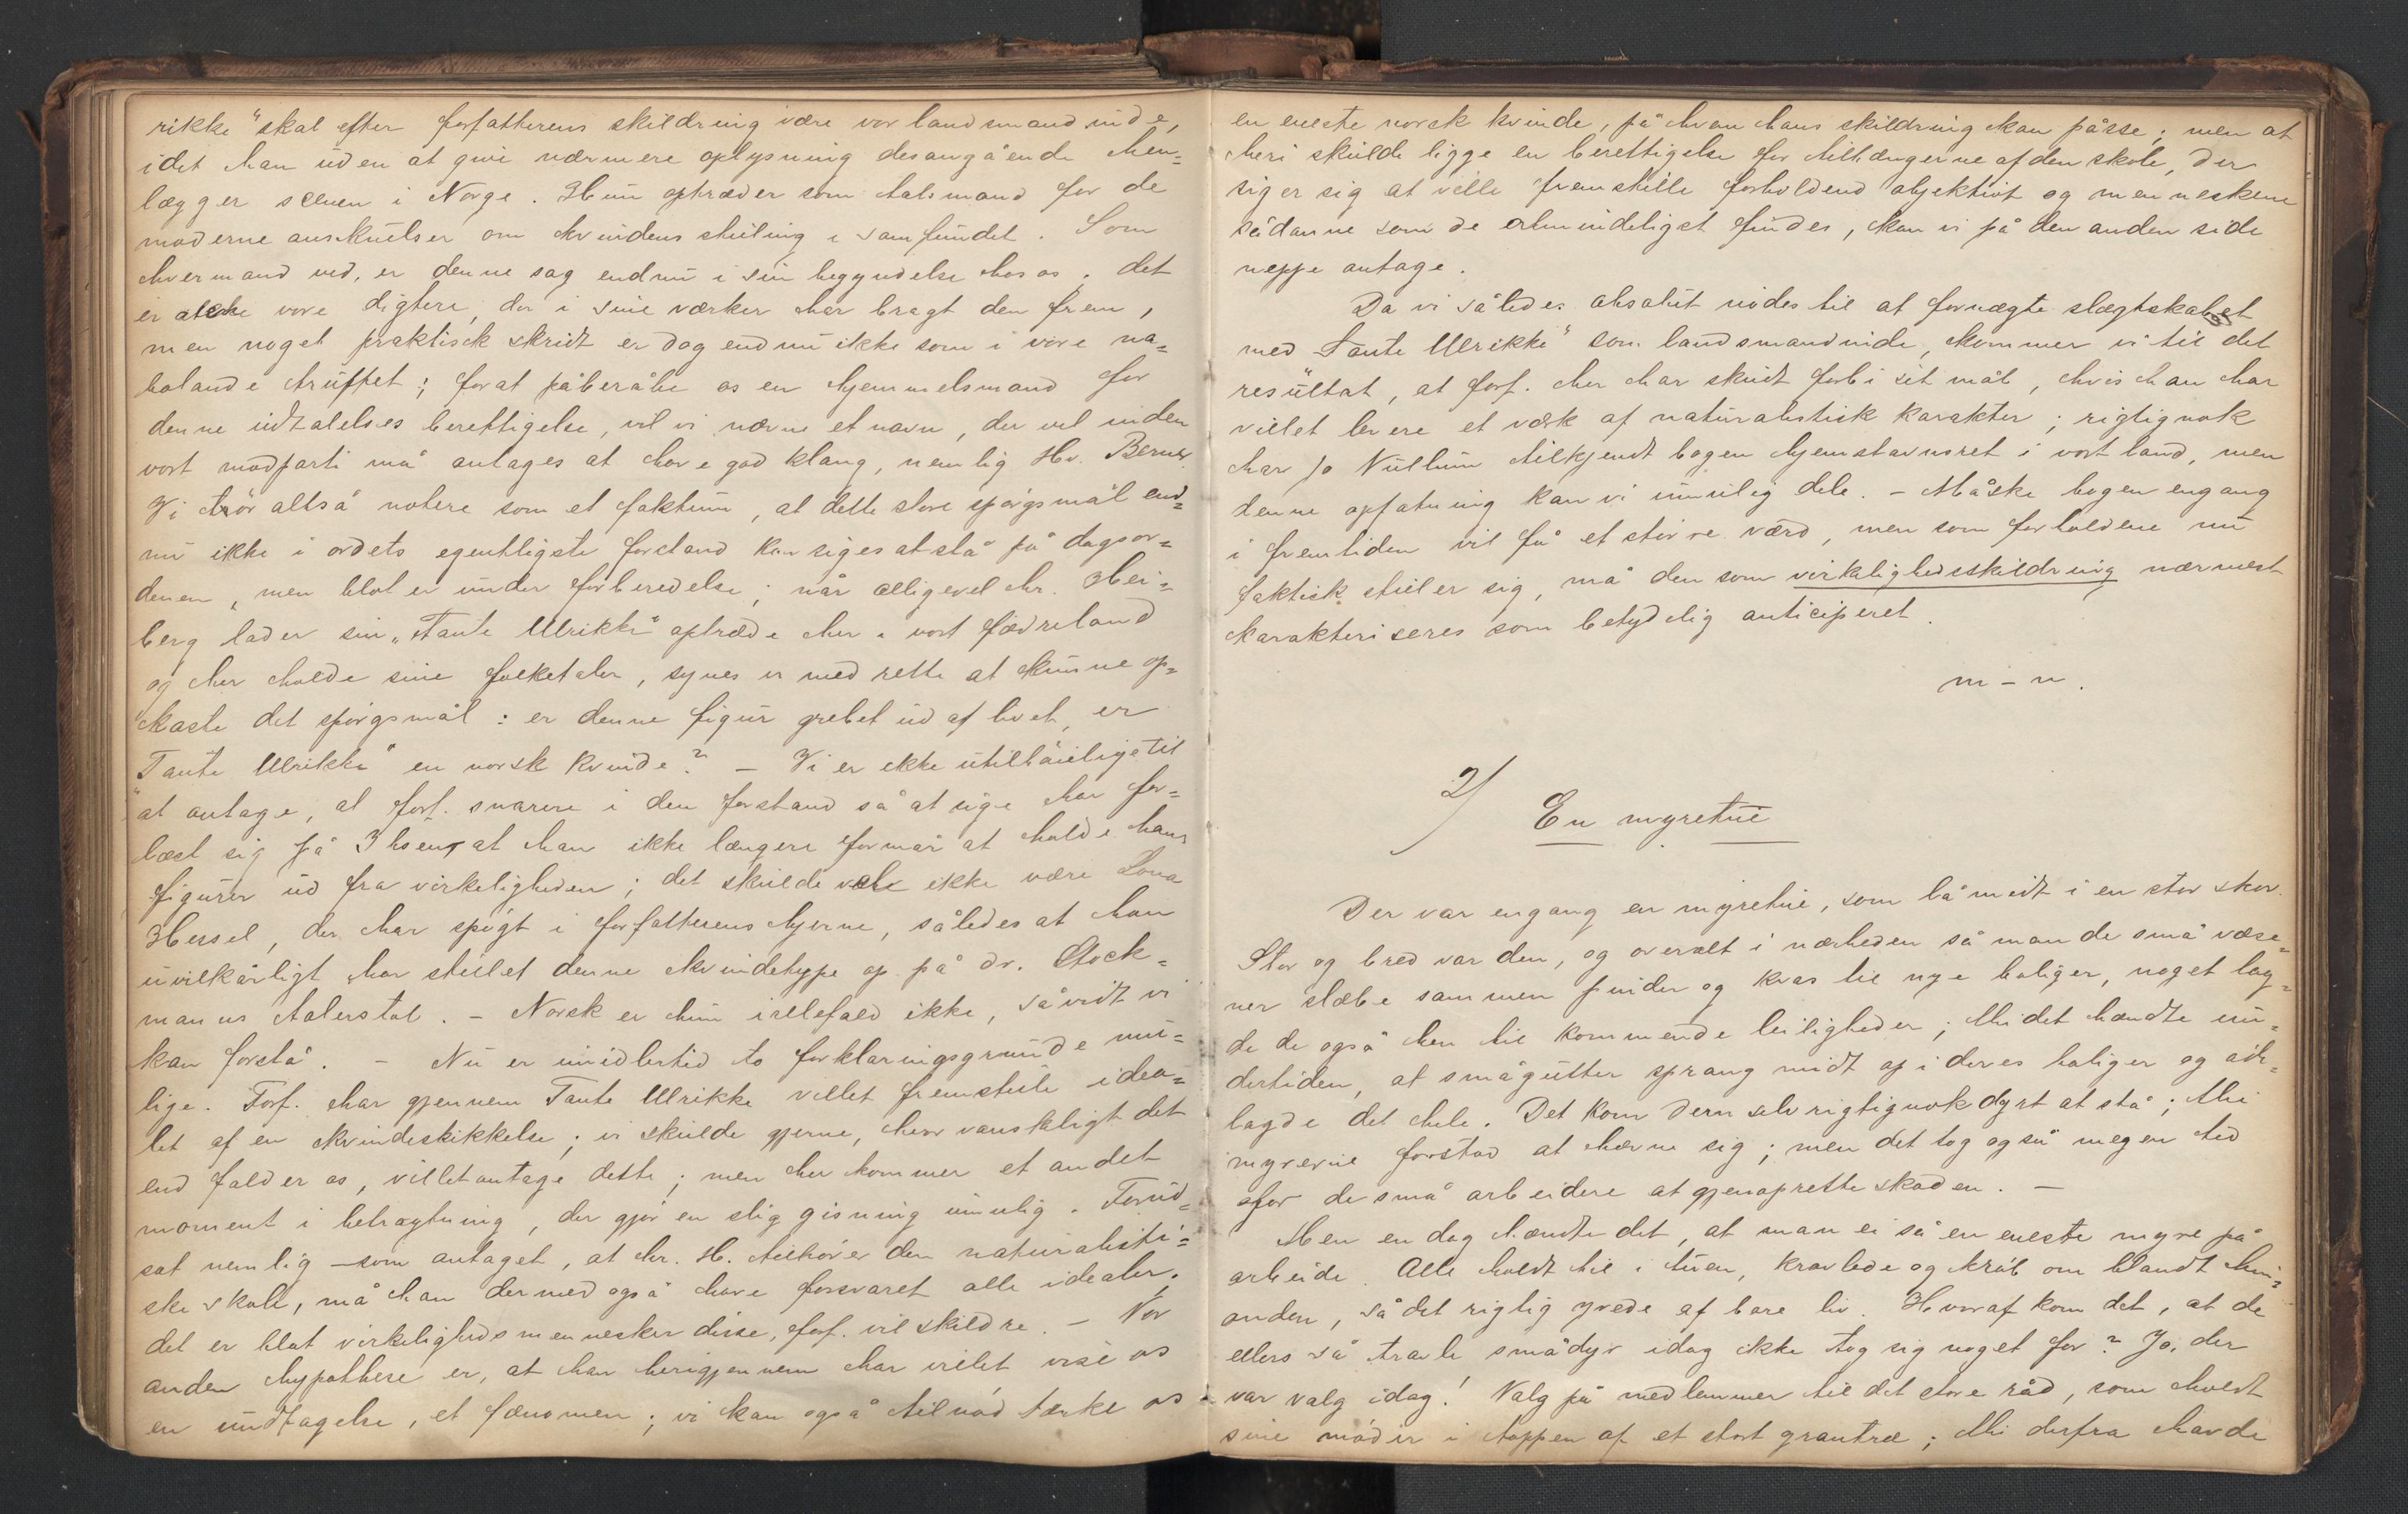 rikke" skal efter forfatterens skildring være vor landsmandinde,
idet han uden at give nærmere oplysning desangående hen=
lægger scenen i Norge. Hun optræder som talsmand for de
moderne anskuelser om kvindens stilling i samfundet. Som
hvermand ved, er denne sag endnu i sin begyndelse hos os. Det
er atske vore digtere, der i sine værker har bragt den frem,
men noget praktisk skridt er dog endnu ikke som i vore na=
bolande truffet; forat påberåbe os en hjemmelsmand for
denne udtalelses berettigelse, vil vi nævne et navn, der vel inden
vort modparti må antages at have god klang, nemlig Hr. Berner.
Vi tør altså notere som et faktum, at dette store spørgsmål end=
nu ikke i ordets egentligste forstand kan siges at stå på dagsor=
denen, men blot er under forberedelse; når alligevel hr. Hei=
berg lader sin „Tante Ulrikke" optræde her i vort fædreland
og her holde sine folketaler, synes vi med rette at kunne op=
kaste det spørgsmål: er denne figur grebet ud af livet, er
"Tante Ulrikke" en norsk kvinde? – Vi er ikke utilbøielige til
at antage, at forf. snarere i den forstand så at sige har for=
læst sig på Ibsen, at han ikke længere formår at holde hans
figurer ud fra virkeligheden; det skulde vel ikke være Lona
Hessel, der har spøgt i forfatterens hjerne, således at han
uvilkårligt har stillet denne kvindetype op på dr. Stock=
manns talerstol. – Norsk er hun iallefald ikke, såvidt vi
kan forstå. – Nu er imidlertid to forklaringsgrunde mu=
lige. Forf. har gjennem Tante Ulrikke villet fremstille idea=
let af en kvindeskikkelse; vi skulde gjerne, hvor vanskligt det
end falder os, villet antage dette; men her kommer et andet
moment i betragtning, der gjør en slig gisning umulig. Forud=
sat nemlig – som antaget, at hr. H. tilhører den naturalisti=
ske skole, må han dermed også have forsvaret alle idealer;
det er blot virkelighedsmennesker disse, forf. vil skildre. – Vor
anden hypothese er, at han herigjennem har villet vise os
en undtagelse, et fænomen; vi kan også tilnød tænke os
en eneste norsk kvinde, på hvem hans skildring kan påsse; men at
heri skulde ligge en berettigelse for tilhængerne af den skole, der
siger sig at ville fremstille forholdene objektivt og menneskene
sådanne som de almindeligst findes, kan vi på den anden side
neppe antage.
Da vi således absolut nødes til at fornægte slægtskabet
med "Tante Ulrikke" som landsmandinde, kommer vi til det
resultat, at forf. her har skudt forbi sit mål, hvis han har
villet levere et værk af naturalistisk karakter; rigtignok
har jo Nullum tilkjendt bogen hjemstavnsret i vort land, men
denne opfatning kan vi umulig dele. – Måske bogen engang
i fremtiden vil få et større værd, men som forholdene nu
faktisk stiller sig, må den som virkelighedsskildring nærmest
karakteriseres som betydelig anticiperet.
m – n.
2/
En myretue
Der var engang en myretue, som lå midt i en stor skov.
Stor og bred var den, og overalt i nærheden så man de små væse=
ner slæbe sammen pinder og kvas til nye boliger, noget lag=
de de også hen til kommende leiligheder; thi det hændte un=
dertiden, at smågutter sprang midt op i deres boliger og øde=
lagde det hele. Det kom dem selv rigtignok dyrt at stå; thi
myrerne forstod at hævne sig; men det tog også megen tid
for de små arbeidere at gjenoprette skaden. –
Men en dag hændte det, at man ei så en eneste myre på
arbeide. Alle holdt til i tuen, kravlede og krøb om blandt hin=
anden, så det rigtig yrede af bare liv. Hvoraf kom det, at de
ellers så travle smådyr idag ikke tog sig noget for? Jo, der
var valg idag! Valg på medlemmer til det store råd, som holdt
sine møder i toppen af et stort grantræ; thi derfra havde